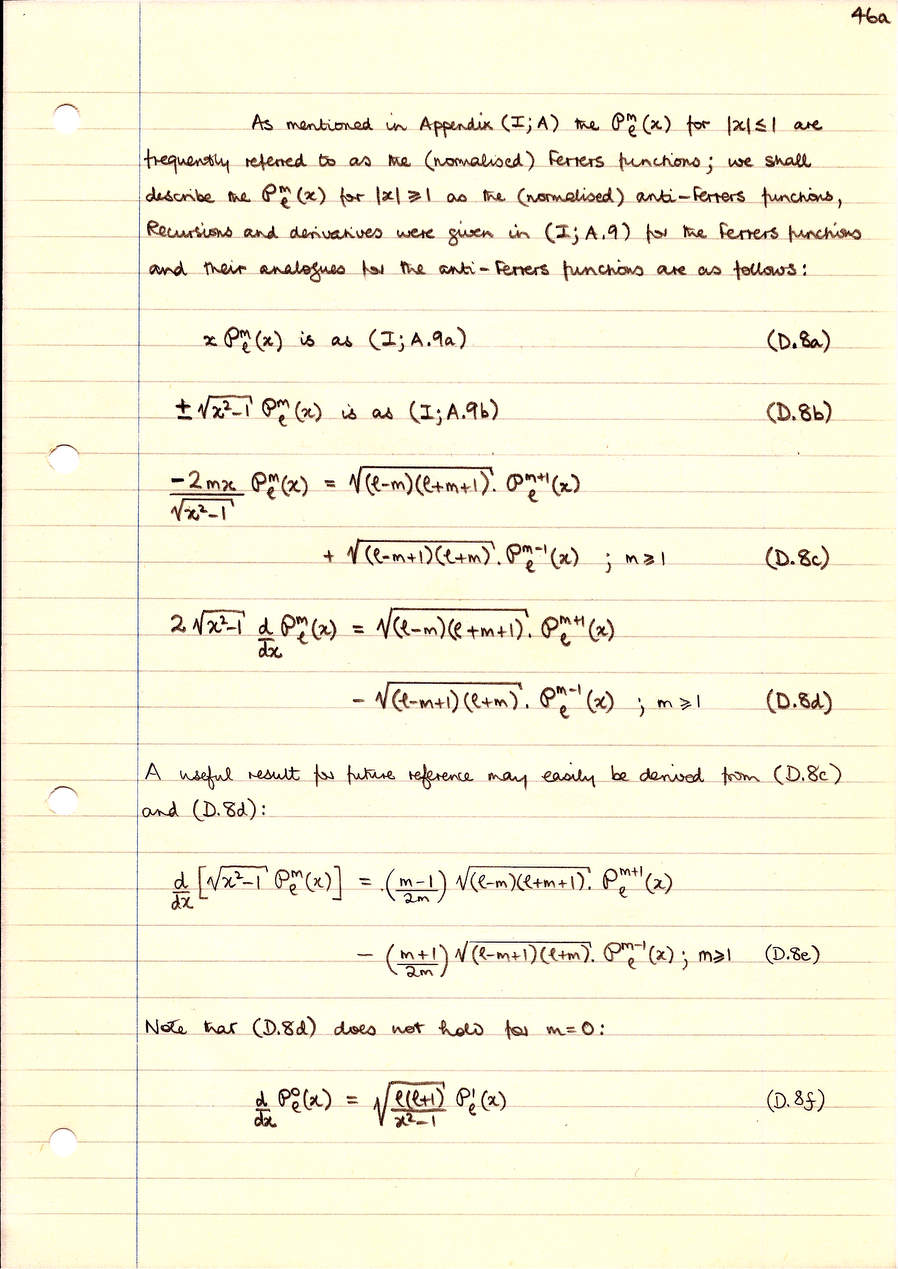 46a
As mentioned in Appendix (I; A) the 𝒫ₗᵐ(x) for |x| ≤ 1 are
frequently referred to as the (normalised) Ferrers functions; we shall
describe the 𝒫ₗᵐ(x) for |x| ⩾ 1 as the (normalised) anti-Ferrers functions,
Recursions and derivatives were given in (I; A.9) for the Ferrers functions
and their analogues for the anti-Ferrers functions are as follows:
x 𝒫ₗᵐ(x) is as (I; A.9a) (D.8a)
± √(x²-1) 𝒫ₗᵐ(x) is as (I; A.9b) (D.8b)
-2mx/√(x²-1) 𝒫ₗᵐ(x) = √((ℓ-m)(ℓ+m+1)). 𝒫ₗᵐ⁺¹(x)
+ √((ℓ-m+1)(ℓ+m)). 𝒫ₗᵐ⁻¹(x) ; m ⩾ 1 (D.8c)
2√(x²-1) d/dx 𝒫ₗᵐ(x) = √((ℓ-m)(ℓ+m+1)). 𝒫ₗᵐ⁺¹(x)
- √((ℓ-m+1)(ℓ+m)). 𝒫ₗᵐ⁻¹(x) ; m ⩾ 1 (D.8d)
A useful result for future reference may easily be derived from (D.8c)
and (D.8d):
d/dx [√(x²-1) 𝒫ₗᵐ(x)] = ((m-1)/2m) √((ℓ-m)(ℓ+m+1)). 𝒫ₗᵐ⁺¹(x)
- ((m+1)/2m) √((ℓ-m+1)(ℓ+m)). 𝒫ₗᵐ⁻¹(x) ; m ⩾ 1 (D.8e)
Note that (D.8d) does not hold for m=0:
d/dx 𝒫ₗ⁰(x) = √(ℓ(ℓ+1)/(x²-1)) 𝒫ₗ¹(x) (D.8f)